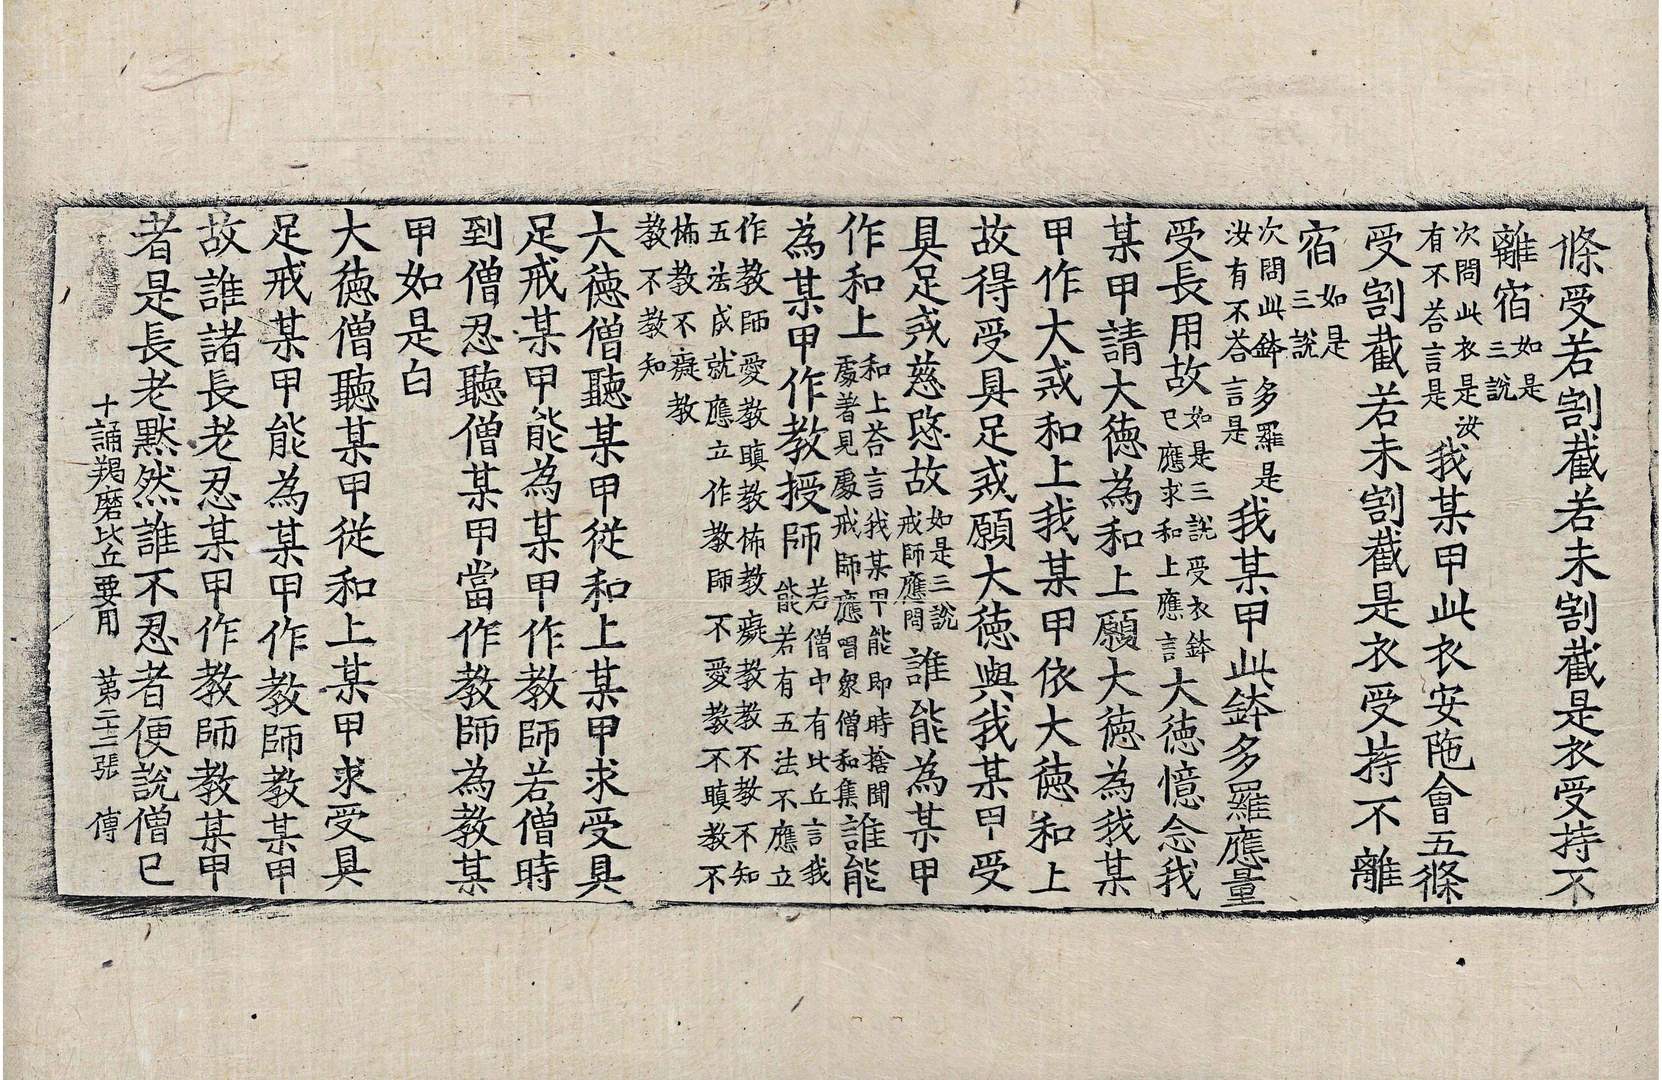 條受若割截若未割截是衣受持不
離宿如是三說
次問此衣是汝有不荅言是我某甲此衣安陁會五條
受割截若未割截是衣受持不離
宿如是三說
次問此鉢多羅是汝有不荅言是我某甲此鉢多羅應量
受長用故如是三說受衣鉢已應求和上應言大德憶念我
某甲請大德為和上願大德為我某
甲作大戒和上我某甲依大德和上
故得受具足戒願大德與我某甲受
具足戒慈愍故如是三說戒師應問誰能為某甲
作和上和上荅言我某甲能即時捨聞處著見處戒師應唱衆僧和集誰能
為某甲作教授師若僧中有比丘言我能若有五法不應立
作教師愛教瞋教怖教癡教教不教不知
五法成就應立作教師不愛教不瞋教不
怖教不癡教
教不教知
大德僧聽某甲從和上某甲求受具
足戒某甲能為某甲作教師若僧時
到僧忍聽僧某甲當作教師為教某
甲如是白
大德僧聽某甲從和上某甲求受具
足戒某甲能為某甲作教師教某甲
故誰諸長老忍某甲作教師教某甲
者是長老默然誰不忍者便說僧已
十誦羯磨比丘要用 第二十二張 傳